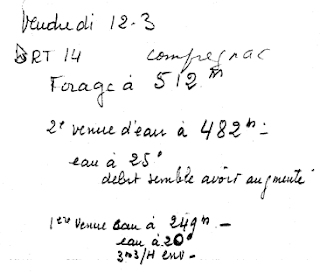 Vendredi 12-3
BRT 14 compregnac
Forage à 512 m
2e venue d'eau à 482 m -
eau à 25°
debit semble avoir augmenté
1ère venue eau à 249 m -
eau à 20°
3 m3/H env -